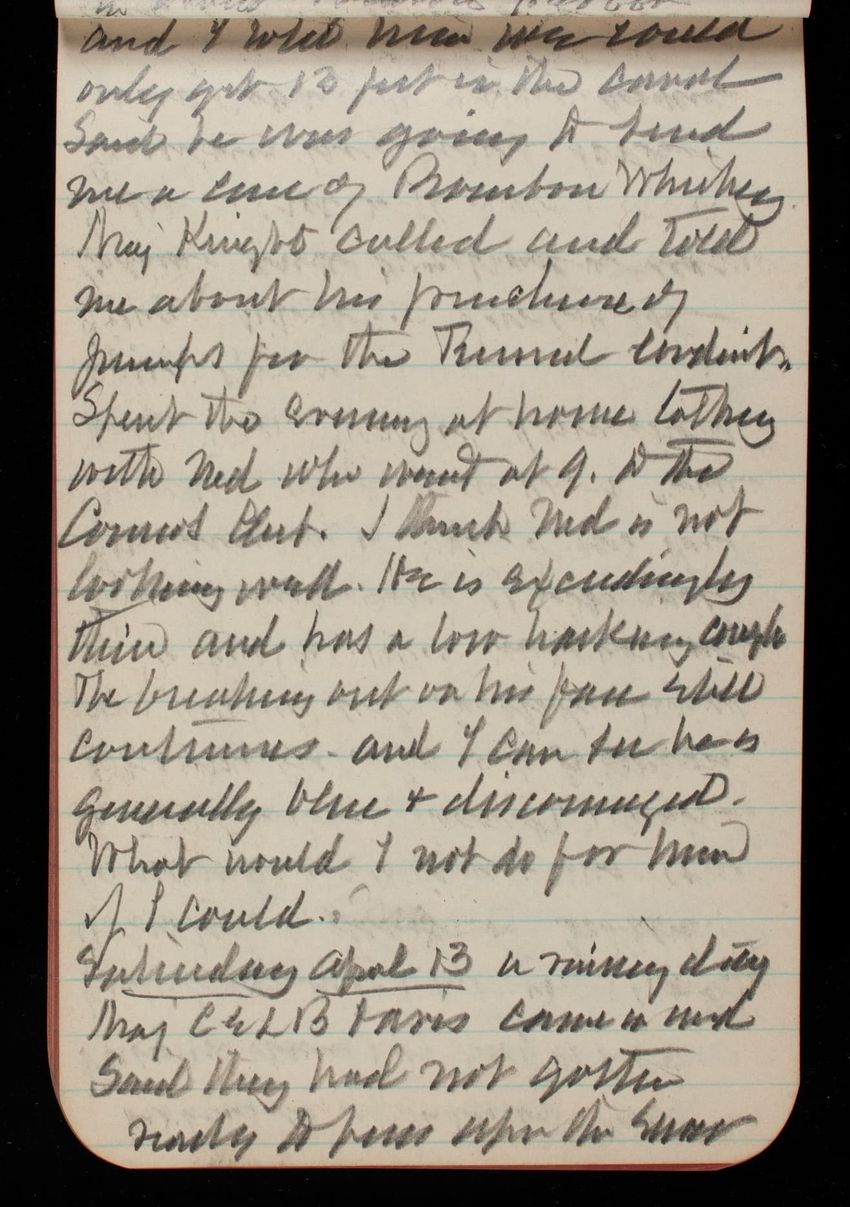 and I told him we could
only get 13 feet in the canal
Said he was going to send
me a case of Bourbon Whiskey
Maj Knight called and told
me about his purchase of
pumps for the Tunnel conduit.
Spent the evening at home talking
with Ned who went at 9. to the
Cosmos Club. I think Ned is not
looking well. He is exceedingly
thin and has a low hacking cough
The breaking out on his face still
continues. and I can see he is
generally blue & discouraged.
What would I not do for him
if I could.
Saturday April 13 a rainy day
Maj C E L B Davis came in and
Said they had not gotten
ready to pass upon the